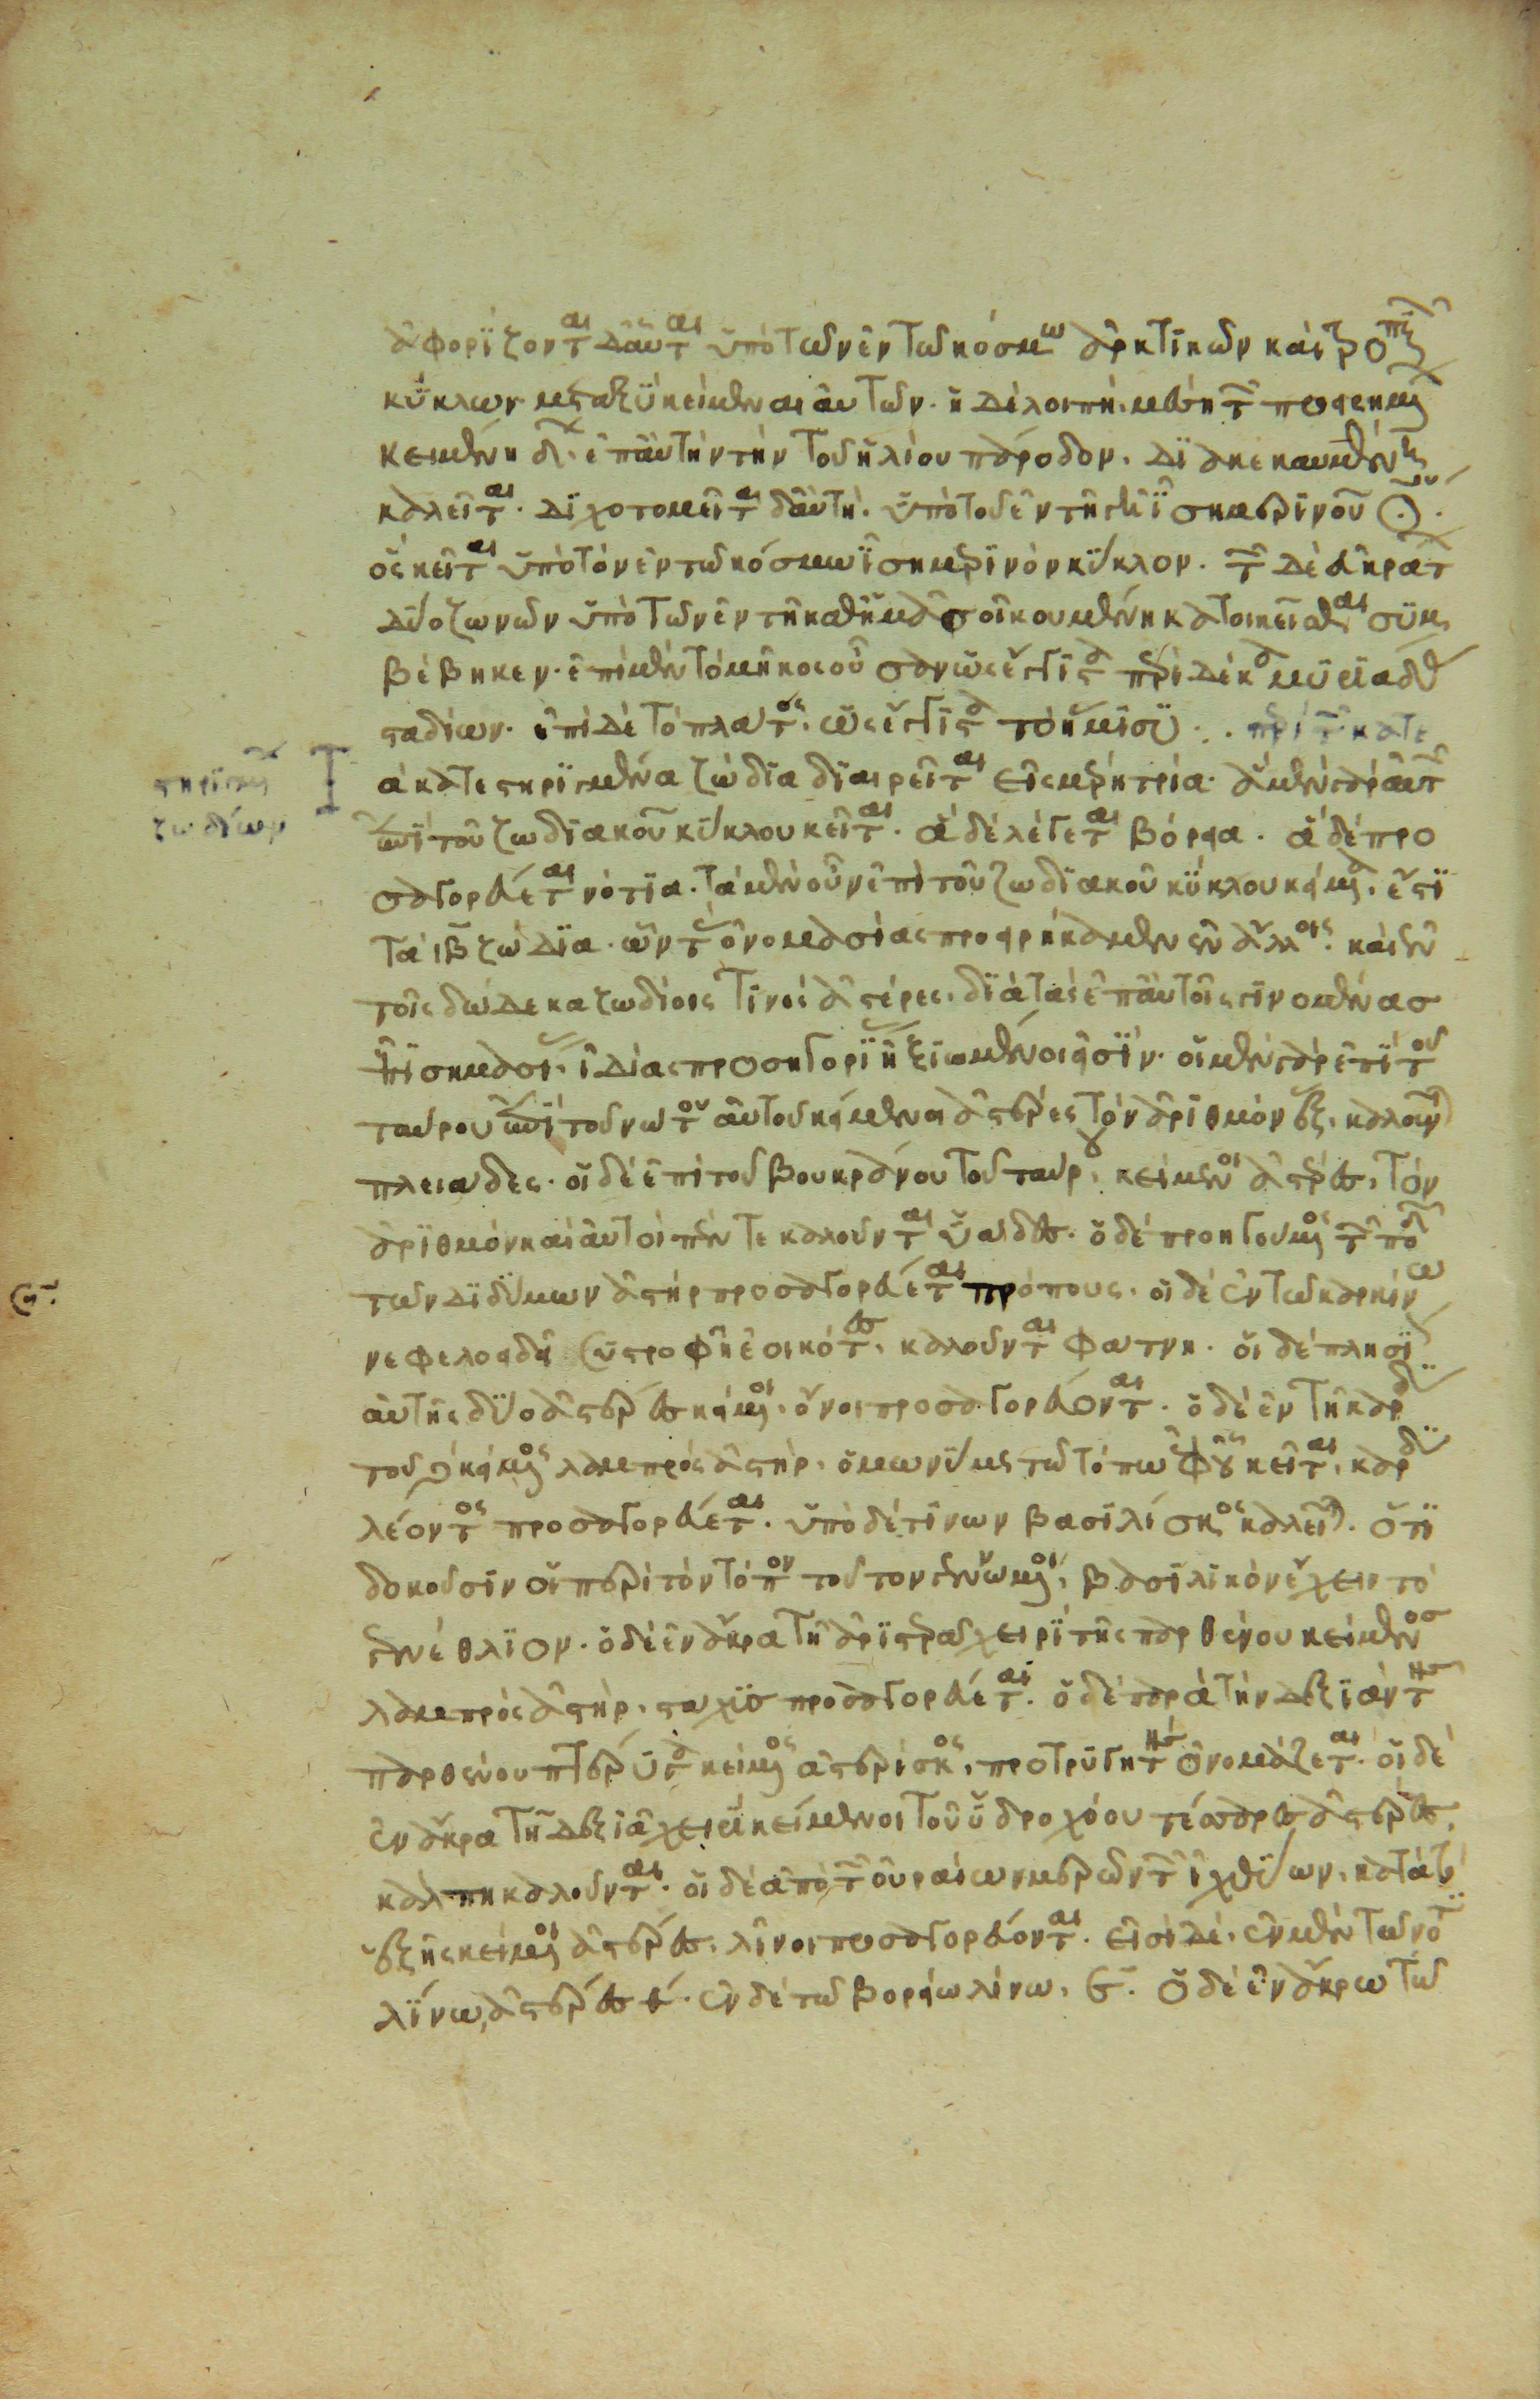 ἀφορίζονται δ' αὗται ὑπὸ τῶν ἐν τῶ κόσμω ἀρκτικῶν καὶ τροπικῶν
κύκλων μεταξὺ κείμεναι αὐτῶν. ἡ δὲ λοιπὴ, μέση τῶν προειρημένων
κειμένη δὲ ἐπ' αὐτὴν τὴν τοῦ ἡλίου πάροδον. διακεκαυμένη
καλεῖται. διχοτομεῖται δ' αὕτη. ὑπὸ τοῦ ἐν τῆ γῆ ἰσημερινοῦ κύκλου.
ὃς κεῖται ὑπὸ τὸν ἐν τῶ κόσμω ἰσημερινὸν κύκλον. τῶν δὲ εὐκράτων
δύο ζωνῶν ὑπὸ τῶν ἐν τῆ καθ' ἡμᾶς οἰκουμένη κατοικεῖσθαι συμ
βέβηκεν. ἐπὶ μὲν τὸ μῆκος οὖσαν ὡς ἔγγιστα περὶ δέκα μυριάδας
σταδίων. ἐπὶ δὲ τὸ πλάτος, ὡς ἔγγιστα τὸ ἥμισυ. περὶ τῶν κατε
στηριγμένων
ζωδίων
ἃ κατεστηριγμένα ζώδια διαιρεῖται εἰς μέρη τρία. ἃ μὲν γὰρ αὐτῶν
ἐπὶ τοῦ ζωδιακοῦ κύκλου κεῖται. ἃ δὲ λέγεται βόρεια. ἃ δὲ προ
σαγορεύεται νότια. τὰ μὲν οὖν ἐπὶ τοῦ ζωδιακοῦ κύκλου κείμενα, ἐστὶ
τὰ ιβ ζώδια. ὧν τὰς ὀνομασίας προειρήκαμεν ἐν ἄλλοις. καὶ ἐν
τοῖς δώδεκα ζωδίοις τινὲς ἀστέρες, διὰ τὰς ἐπ' αὐτοῖς γινομένας
ἐπισημασίας, ἰδίας προσηγορίας ἠξιωμένοι εἰσίν. οἱ μὲν γὰρ ἐπὶ τοῦ
ταύρου ἐπὶ τοῦ νώτου αὐτοῦ κείμενοι ἀστέρες τὸν ἀριθμὸν ἓξ, καλοῦνται
πλειάδες. οἱ δὲ ἐπὶ τοῦ βουκράνου τοῦ ταύρου, κείμενοι ἀστέρες, τὸν
ἀριθμὸν καὶ αὐτοὶ πέντε καλοῦνται ὑάδες. ὁ δὲ προηγούμενος τῶν ποδῶν
τῶν διδύμων ἀστὴρ προσαγορεύεται πρόπους. οἱ δὲ ἐν τῶ καρκίνω
νεφελοειδεῖ συστροφῆ ἐοικότες, καλοῦνται φάτνη. οἱ δὲ πλησίον
αὐτῆς δύο ἀστέρες κείμενοι, ὄνοι προσαγορεύονται. ὁ δὲ ἐν τῆ καρδία
τοῦ λέοντος κείμενος λαμπρὸς ἀστὴρ, ὁμωνύμως τῶ τόπω ἐφ' οὗ κεῖται, καρδία
λέοντος προσαγορεύεται. ὑπὸ δέ τινων βασιλίσκος καλεῖται. ὅτι
δοκοῦσιν οἱ περὶ τὸν τόπον τοῦτον γεννώμενοι, βασιλικὸν ἔχειν τὸ
γενέθλιον. ὁ δὲ ἐν ἄκρα τῆ ἀριστερᾶ χειρὶ τῆς παρθένου κείμενος
λαμπρὸς ἀστὴρ, στάχυς προσαγορεύεται. ὁ δὲ παρὰ τὴν δεξιὰν τῆς
παρθένου πτέρυγα κείμενος ἀστερίσκος, προτρυγητὴς ὀνομάζεται. οἱ δὲ
ἐν ἄκρα τῆ δεξιᾶ χειρὶ κείμενοι τοῦ ὑδροχόου τέσσαρες ἀστέρες,
κάλπη καλοῦνται. οἱ δὲ ἀπὸ τῶν οὐραίων μερῶν τῶν ἰχθύων, κατὰ τὸ
ἑξῆς κείμενοι ἀστέρες, λίνοι προσαγορεύονται. εἰσὶ δὲ, ἐν μὲν τῶ νοτίω
λίνω, ἀστέρες θ. ἐν δὲ τῶ βορείω λίνω, ε. ὁ δὲ ἐν ἄκρω τῶ